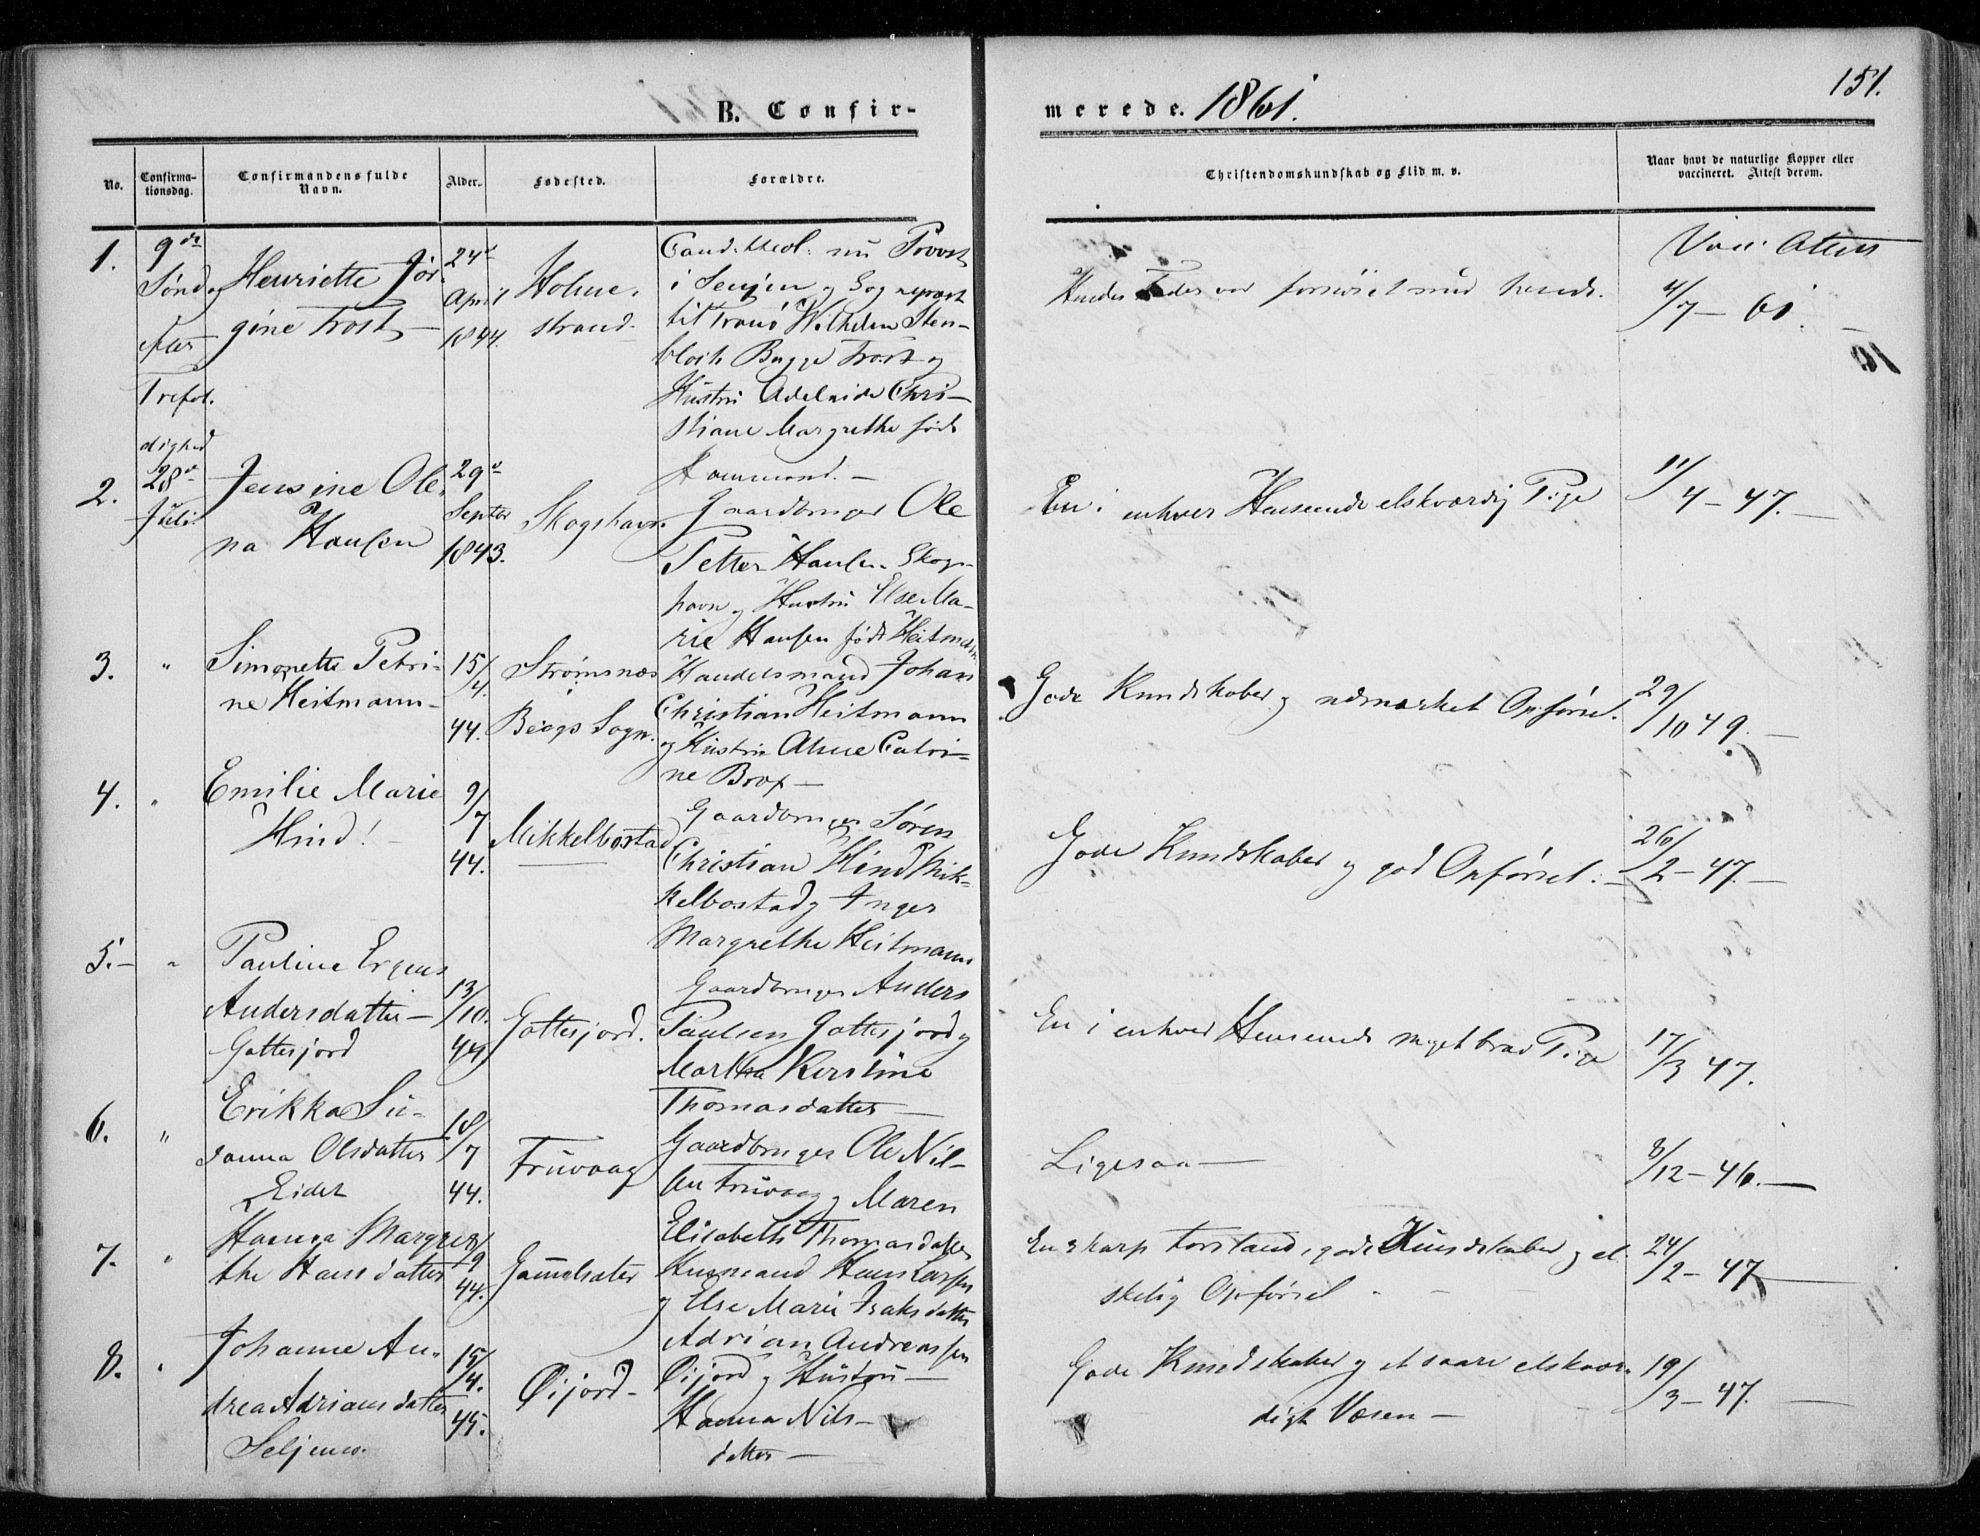 151.
B. Confirmerede. 1861.
No.
Confirmationsdag.
Confirmandens fulde Navn.
Alder.
Fødested.
Forældre.
Christendomskundskab og Flid m. v.
Naar havt de naturlige Kopper eller vaccineret. Attest derom.
1.
9de
Søndag
efter
Trefol-
dighed
Henriette Jør-
gine Trost
24de
April
1844.
Holme-
strand.
Cand. theol. nu Provst
i Senjen og Sogneprest
til Tranø Wilhelm Sten-
bloch Bugge Trost og
Hustru Adelaide Chri-
stiane Margrethe født
Hendes Fader var fornøiet med hende.
Vacc. Attest
4/7 - 61.
2.
28de
Juli
Jensine Ole-
na Hansen
29de
Septbr
1843.
Skogshavn.
Gaardbruger Ole
Petter Hansen Skogs-
havn og Hustru Else Ma-
rie Hansen født Heitmann
En i enhver Henseende elskværdig Pige
11/4 - 47.
3.
"
Simonette Petri-
ne Heitmann
15/4.
44.
Strømsnæs
Sogn.
Handelsmand Johan
Christian Heitmann
og Hustru Catri-
ne Brox
Gode Kundskaber og udmærket Opførsel.
29/10 49.
4.
"
Emilie Marie
Hind!
9/7
44.
Mikkelbostad
Gaardbruger Søren
Christian Hind Mik-
kelbostad og Inger
Margrethe Heitmann
Gode Kundskaber og god Opførsel.
26/2 - 47.
5.
"
Pauline
Andersdatter
Gottesjord
13/10.
44
Gottesjord.
Gaardbruger Anders
Paulsen Gottesjord og
Martha Kerstine
Thomasdatter
En i enhver Henseende meget brav Pige
17/3 47.
6.
"
Erikka Su-
sanna Olsdatter
Eidet
18/7
44.
Truvaag
Gaardbruger Ole Nil-
sen Truvaag og Maren
Elisabeth Thomasdatter
Ligesaa
8/12 - 46.
7.
"
Hanna Margre-
the Hansdatter
9
44.
Gammelsæter
Husmand Hans Larsen
og Else Marie Isaksdatter
En skarp Forstand, gode Kundskaber og el-
skelig Opførsel
24/2 - 47
8.
"
Johanne An-
drea Adriansdatter
15/4.
45.
Øijord
Adrian Andreassen
Øijord og Hustru
Hanna Nils-
datter
Gode Kundskaber og et saare elskvær-
digt Væsen
19/3 - 47.